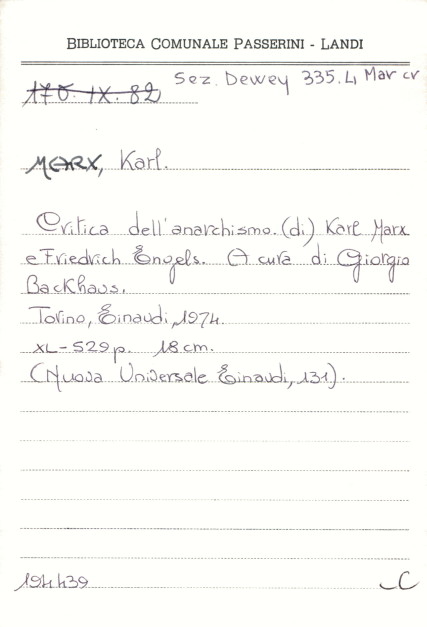 BIBLIOTECA COMUNALE PASSERINI - LANDI
Sez. Dewey 335.4 Mar cr
170. IX. 82
MARX, Karl.
Critica dell'anarchismo. (di) Karl Marx
e Friedrich Engels. A cura di Giorgio
Backhaus.
Torino, Einaudi, 1974.
XL-529 p. 18 cm.
(Nuova Universale Einaudi, 131).
194439
C